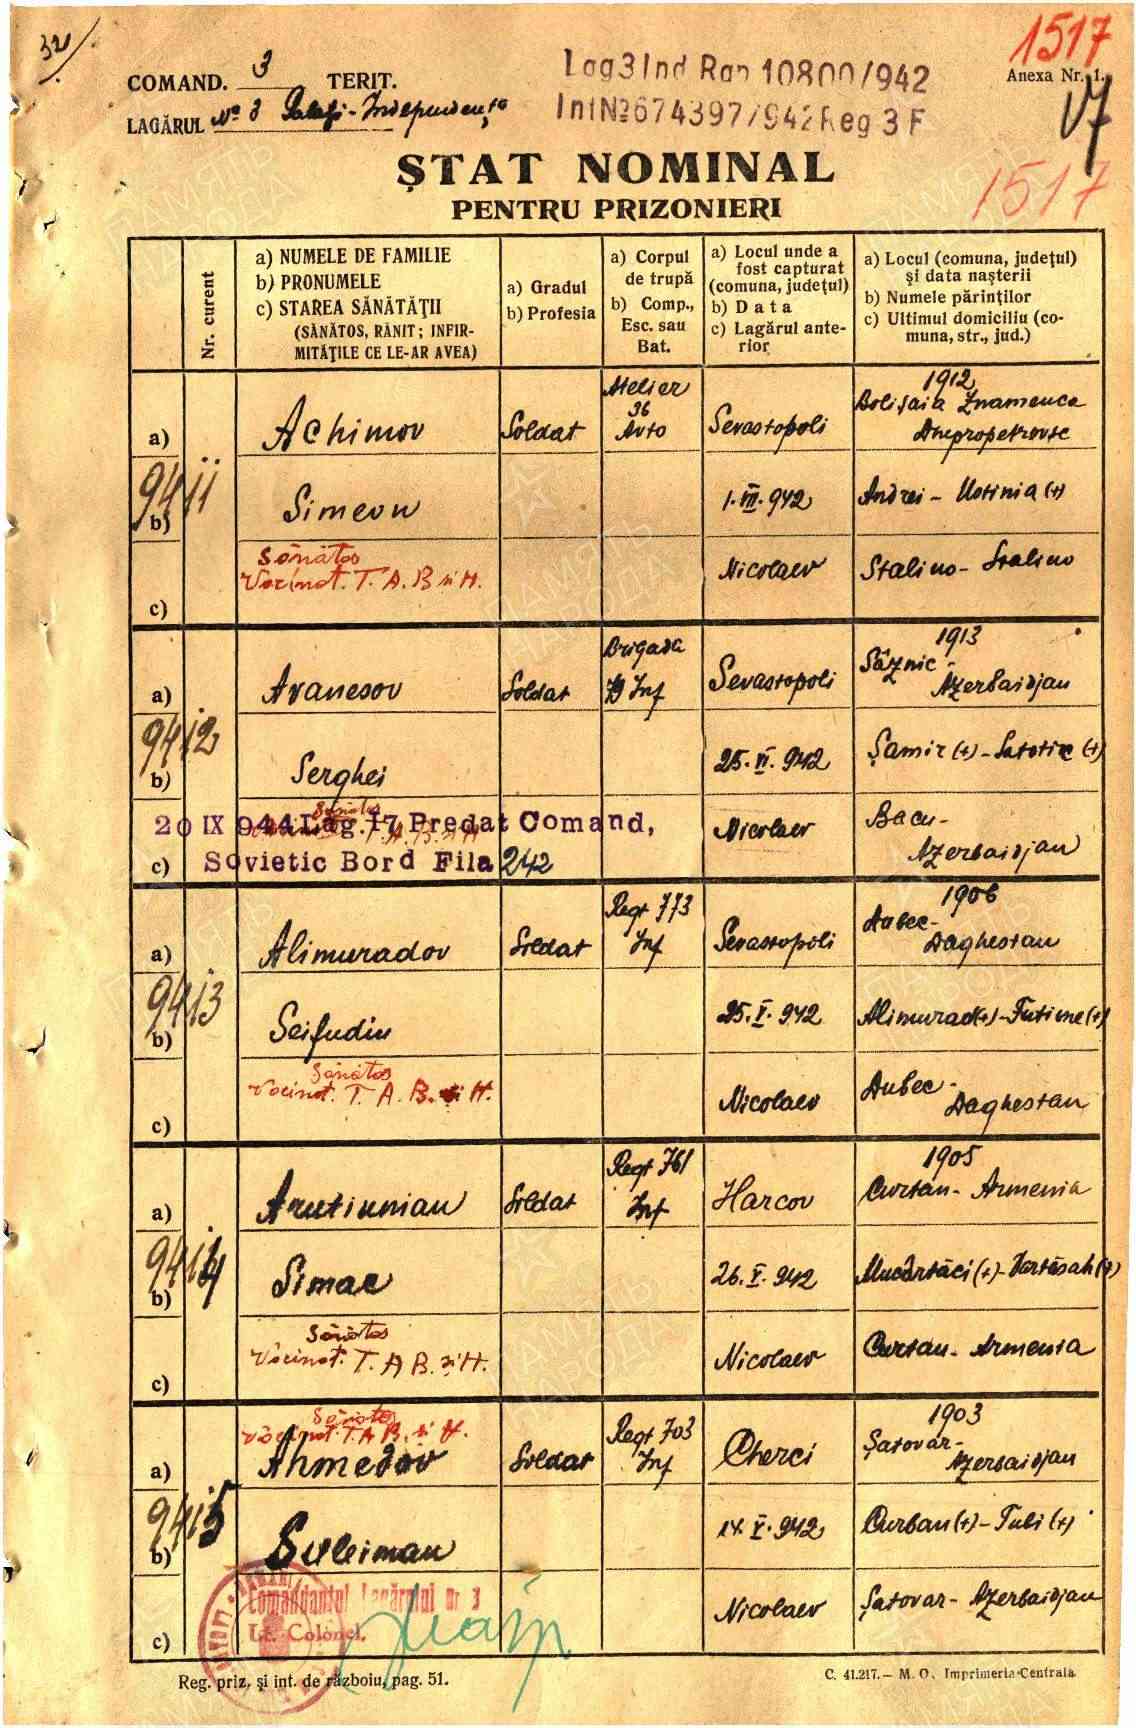 32
1517
COMAND. 3 TERIT.
Lag 3 Ind Rap 10800/942
Anexa Nr. 1.
LAGĂRUL No 3 Galați-Independența
Int No 674397/942 Reg 3 F
ȘTAT NOMINAL
1517
PENTRU PRIZONIERI
Nr. curent
a) NUMELE DE FAMILIE
b) PRONUMELE
c) STAREA SĂNĂTĂȚII
(SĂNĂTOS, RĂNIT; INFIR-
MITĂȚILE CE LE-AR AVEA)
a) Gradul
b) Profesia
a) Corpul
de trupă
b) Comp.,
Esc. sau
Bat.
a) Locul unde a
fost capturat
(comuna, județul)
b) Data
c) Lagărul ante-
rior
a) Locul (comuna, județul)
și data nașterii
b) Numele părinților
c) Ultimul domiciliu (co-
muna, str., jud.)
a) Achimov Soldat Atelier 36 Avto Sevastopoli 1912 Bolișaia Znamenca Dnepropetrovsc
9411
b) Simeon 1.VII.942 Andrei - Ustinia (+)
c) Sănătos
Vacinat. T. A. B și H. Nicolaev Stalino - Stalino
a) Avanesov Soldat Brigada 79 Inf Sevastopoli 1913 Sâznic - Azerbaidjan
9412
b) Serghei 25.VI.942 Șamir (+) - (+)
Sănătos
T. A. B. și H
20 IX 944 Lag. 17 Predat Comand,
c) Sovietic Bord Fila 242
Nicolaev Bacu - Azerbaidjan
a) Alimuradov Soldat Regt 773 Inf Sevastopoli 1906 Aubec - Daghestan
9413
b) Seifudin 25.V.942 Alimurad (+) - Futime (+)
c) Sănătos
Vacinat. T. A. B. și H. Nicolaev Aubec - Daghestan
a) Arutiunian Soldat Regt 761 Inf Harcov 1905 Curtan - Armenia
9414
b) Simac 26.V.942 Mucârtâci (+) - Vartâsah (+)
c) Sănătos
Vacinat. T. A B. și H. Nicolaev Curtan - Armenia
Sănătos
Vacinat. T. A B. și H.
a) Ahmedov Soldat Regt 703 Inf Cherci 1903 Șatovar - Azerbaidjan
9415
b) Suleiman 14.V.942 Curban (+) - Tuli (+)
c) Comandantul Lagărului nr 3
Lt. Colonel.
Nicolaev Șatovar - Azerbaidjan
Reg. priz. și int. de războiu, pag. 51.
C. 41.217. — M. O. Imprimeria Centrala
ПАМЯТЬ
НАРОДА